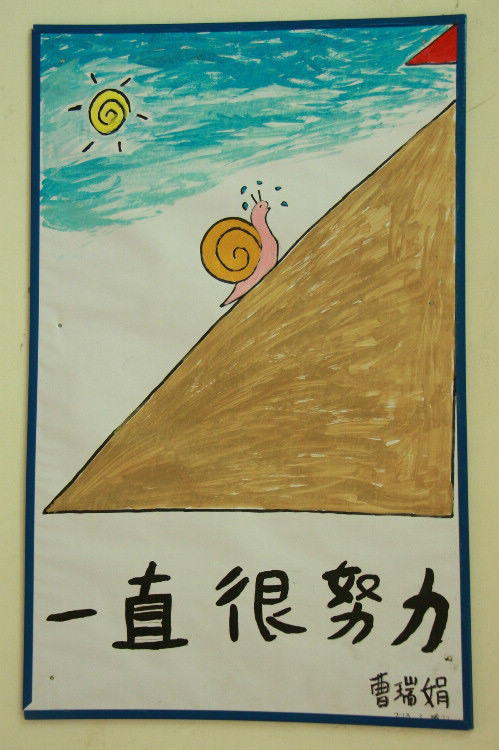 一直很努力
曹瑞娟